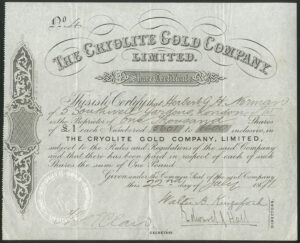 THE CRYOLITE GOLD COMPANY,
LIMITED.
Share Certificate
This is to Certify that Herbert H. Norman
of 5 Gardens London
is the Proprietor of One Thousand Shares
of £1 each Numbered to inclusive, in
THE CRYOLITE GOLD COMPANY, LIMITED,
subject to the Rules and Regulations of the said Company
and that there has been paid in respect of each of such
Shares the sum of One Pound.
Given under the Common Seal of the said Company this
22nd day of July
Walter B. Kingsford
DIRECTORS.
SECRETARY